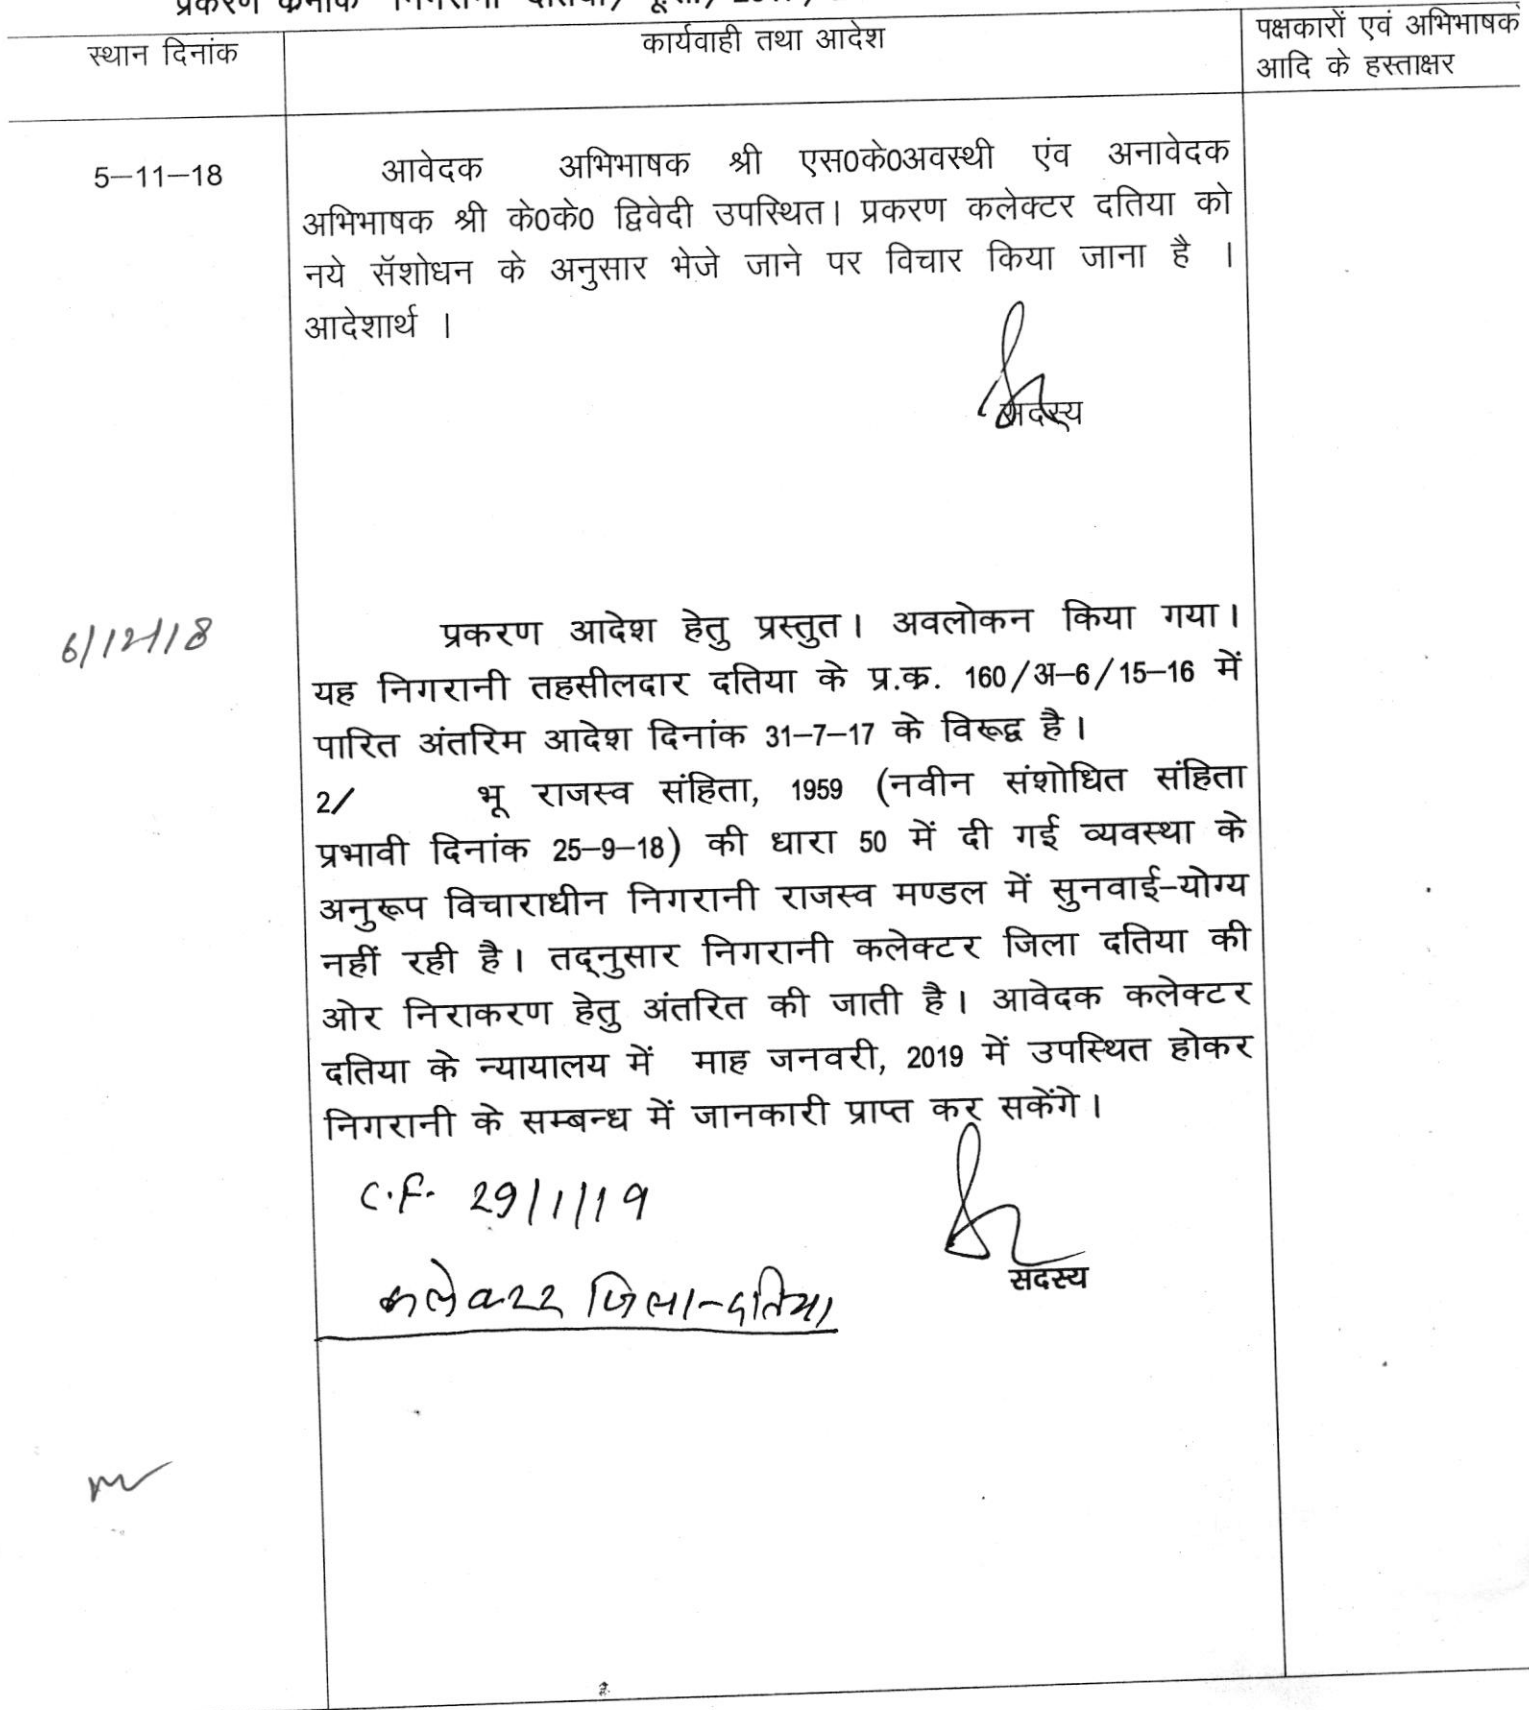 स्थान दिनांक
कार्यवाही तथा आदेश
पक्षकारों एवं अभिभाषकों
आदि के हस्ताक्षर
5–11–18
आवेदक अभिभाषक श्री एस0के0अवस्थी एंव अनावेदक
अभिभाषक श्री के0के0 द्विवेदी उपस्थित। प्रकरण कलेक्टर दतिया को
नये सॅशोधन के अनुसार भेजे जाने पर विचार किया जाना है ।
आदेशार्थ ।
सदस्य
6/12/18
प्रकरण आदेश हेतु प्रस्तुत। अवलोकन किया गया।
यह निगरानी तहसीलदार दतिया के प्र.क्र. 160/अ–6/15–16 में
पारित अंतरिम आदेश दिनांक 31–7–17 के विरूद्व है।
2/ भू राजस्व संहिता, 1959 (नवीन संशोधित संहिता
प्रभावी दिनांक 25–9–18) की धारा 50 में दी गई व्यवस्था के
अनुरूप विचाराधीन निगरानी राजस्व मण्डल में सुनवाई–योग्य
नहीं रही है। तद्नुसार निगरानी कलेक्टर जिला दतिया की
ओर निराकरण हेतु अंतरित की जाती है। आवेदक कलेक्टर
दतिया के न्यायालय में माह जनवरी, 2019 में उपस्थित होकर
निगरानी के सम्बन्ध में जानकारी प्राप्त कर सकेंगे।
C.F. 29/1/19
सदस्य
कलेक्टर जिला-दतिया